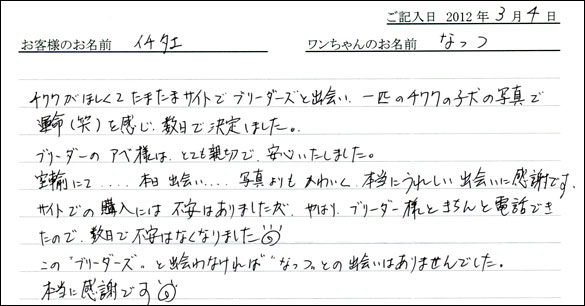 ご記入日 2012年 3月 4日
お客様のお名前 イチタエ ワンちゃんのお名前 なっつ
チワワがほしくてたまたまサイトでブリーダーズと出会い、一匹のチワワの子犬の写真で
運命(笑)を感じ、数日で決定しました。
ブリーダーのアベ様は、とても親切で、安心いたしました。
空輸にて.... 本日出会い.... 写真よりもかわいく、本当にうれしい出会いに感謝です。
サイトでの購入には不安はありましたが、やはり、ブリーダー様ときちんと電話でき
たので、数日で不安はなくなりました
この"ブリーダーズ"と出会わなければ"なっつ"との出会いはありませんでした。
本当に感謝です